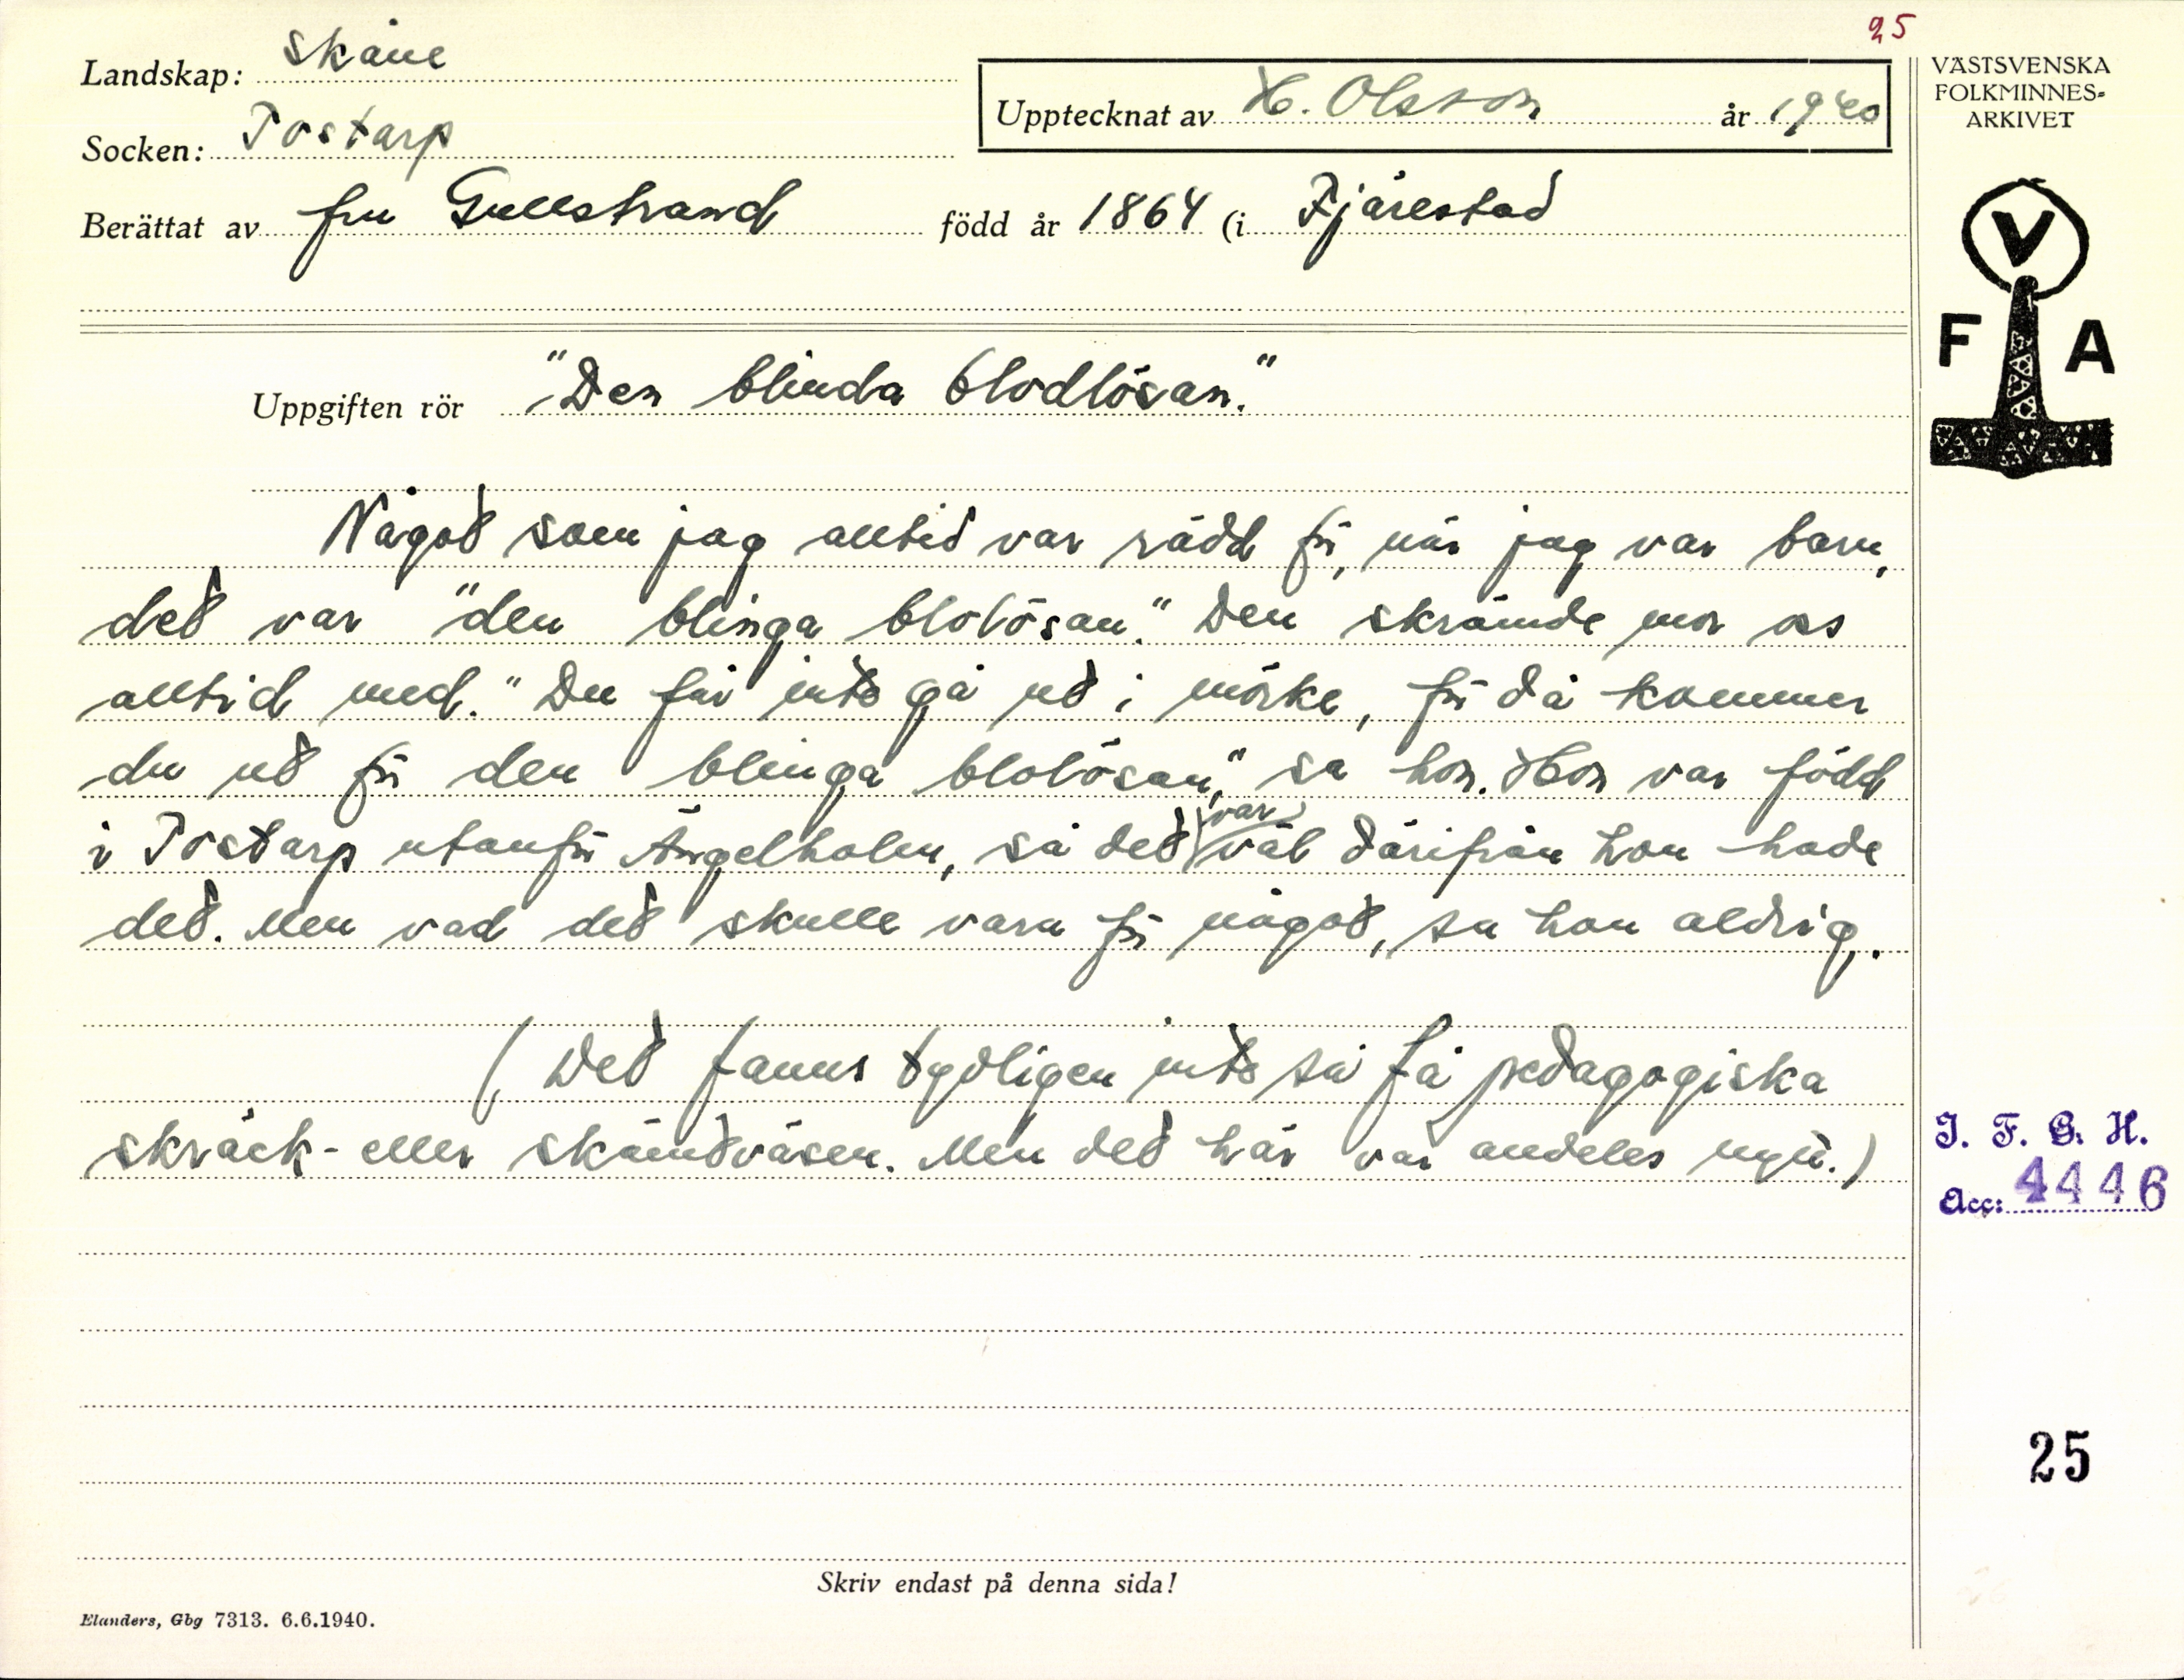 25
Landskap: Skåne
Upptecknat av H. Olsson år 1940
Socken: Tostarp
Berättat av fru Gullstrand född år 1864 (i Fjärestad
VÄSTSVENSKA
FOLKMINNES-
ARKIVET
V
F A
Uppgiften rör "Den blinda blodlösan."
Något som jag alltid var rädd för, när jag var barn,
det var "den blinga blolösan." Den skrämde mor oss
alltid med. "Du får inte gå ut i mörke, för då kommer
du ut för den blinga blolösan," sa hon. Hon var född
i Tostarp utanför Ängelholm, så det var väl därifrån hon hade
det. Men vad det skulle vara för något, sa hon aldrig.
(Det fanns tydligen inte så få pedagogiska
skräck- eller skämtväsen. Men det här var andeles nytt.)
I. F. G. H.
Acc: 4446
25
Skriv endast på denna sida!
Elanders, Gbg 7313. 6.6.1940.